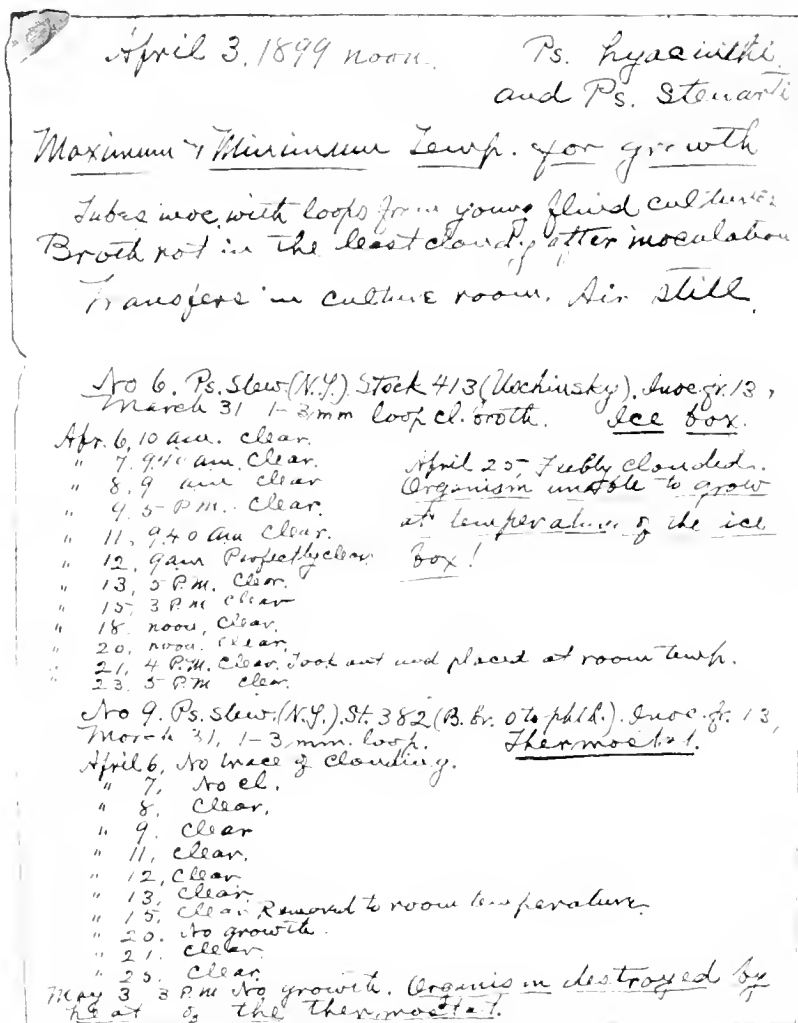 April 3, 1899 noon. Ps. hyacinthi
and Ps. Stewarti
Maximum & Minimum Temp. for growth
Tubes inoc. with loops from young fluid cultures
Broth not in the least cloudy after inoculation
Transfers in culture room. Air still.
No 6. Ps. Stew. (N.Y.) Stock 413 (Uschinsky). Inoc. fr. 13,
March 31 1-3 mm loop cl. broth. Ice box.
Apr. 6, 10 am. clear.
" 7, 9:40 am. Clear.
" 8, 9 am clear
" 9, 5 P.M. Clear.
" 11, 9 40 am Clear.
" 12, 9 am Perfectly clear.
" 13, 5 P.M. Clear.
" 15, 3 P.M clear
" 18 noon, Clear.
" 20, noon. Clear,
" 21, 4 P.M. Clear. Took out and placed at room temp.
" 23. 5 P.M clear.
April 25, Feebly clouded.
Organism unable to grow
at temperature of the ice
box!
No 9. Ps. Stew. (N.Y.) St. 382 (B. br. 0 to phth.). Inoc. fr. 13,
March 31, 1-3 mm. loop. Thermostat.
April 6, No trace of clouding.
" 7, No cl.
" 8, Clear,
" 9. Clear
" 11, Clear.
" 12, Clear
" 13, Clear
" 15, Clear. Removed to room temperature.
" 20. No growth.
" 21. Clear.
" 25. Clear.
May 3 3 P.M No growth. Organism destroyed by
heat of the thermostat.